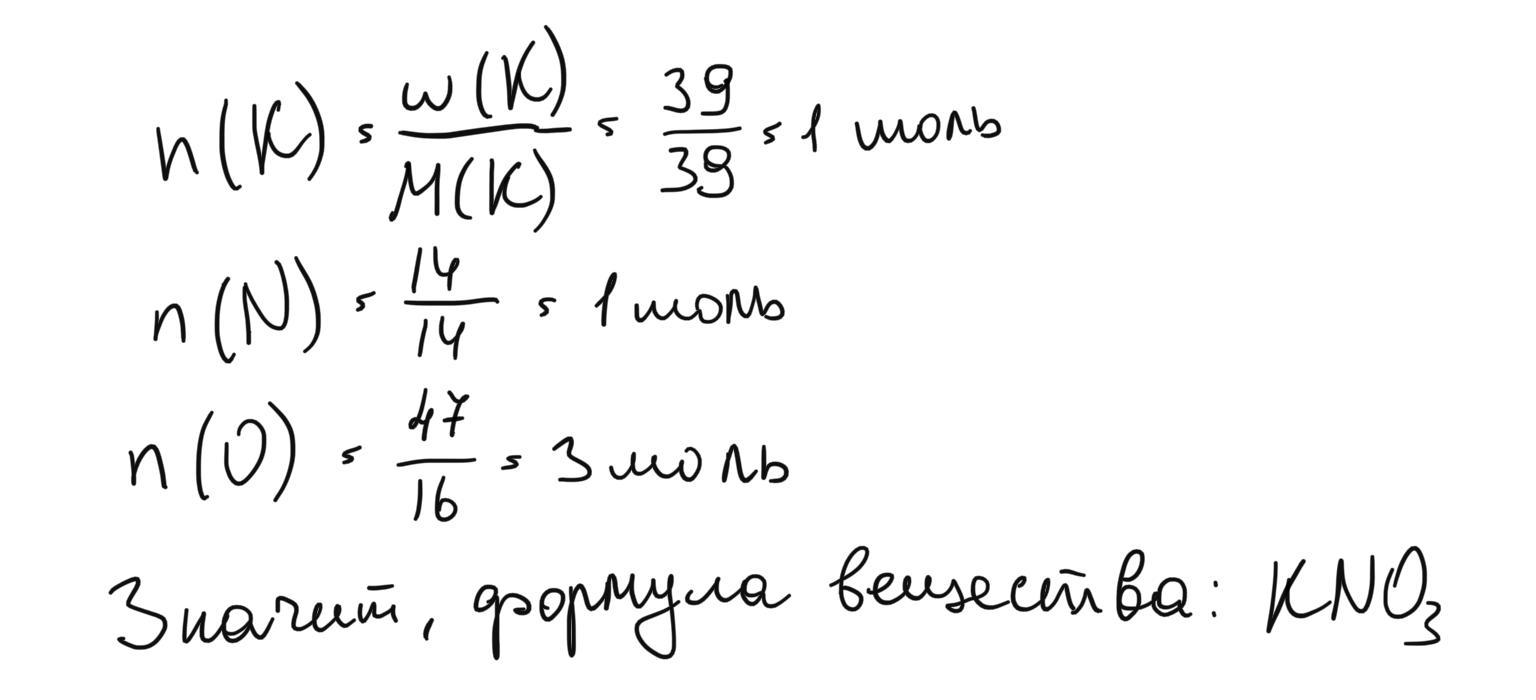 n(K) = w(K)/M(K) = 39/39 = 1 моль
n(N) = 14/14 = 1 моль
n(O) = 47/16 = 3 моль
Значит, формула вещества: KNO₃